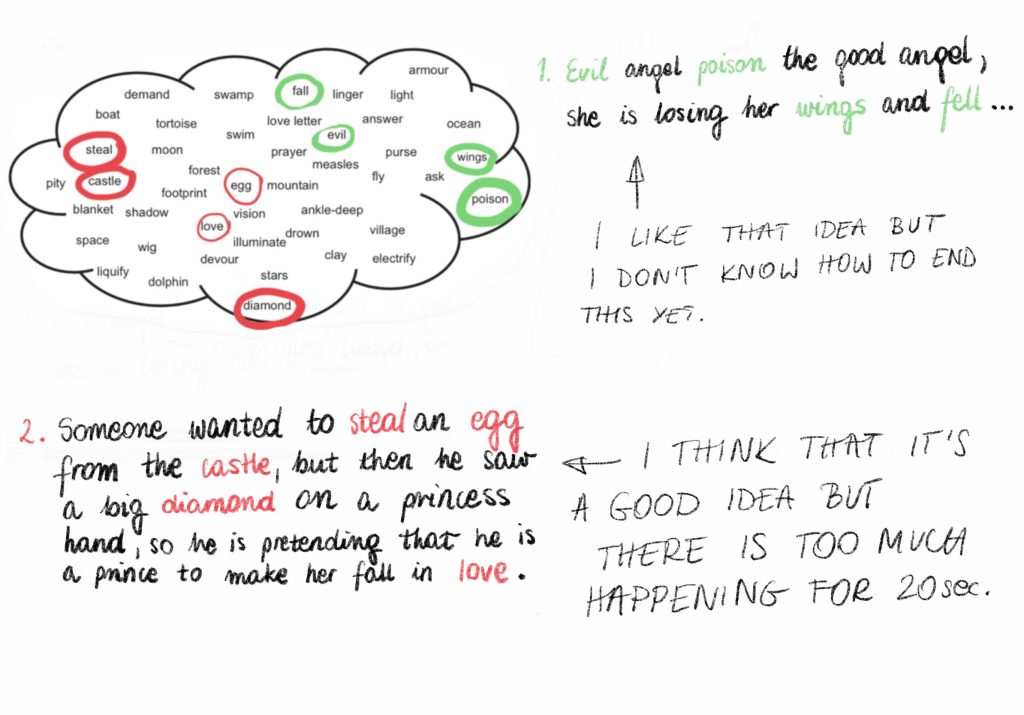 armour
demand swamp fall linger light
boat tortoise love letter answer ocean
swim evil
steal moon prayer measles purse wings
forest fly ask
pity castle footprint egg mountain poison
blanket shadow love vision ankle-deep
space wig illuminate drown village
devour clay electrify
liquify dolphin stars
diamond
1. Evil angel poison the good angel,
she is losing her wings and fell...
I LIKE THAT IDEA BUT
I DON'T KNOW HOW TO END
THIS YET.
2. Someone wanted to steal an egg
from the castle, but then he saw
a big diamond on a princess
hand, so he is pretending that he is
a prince to make her fall in love.
I THINK THAT IT'S
A GOOD IDEA BUT
THERE IS TOO MUCH
HAPPENING FOR 20sec.